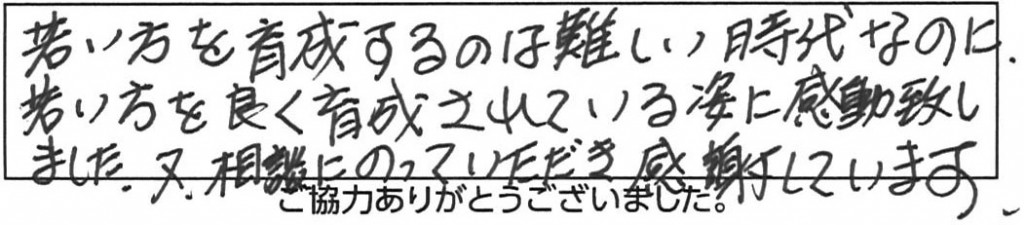 若い方を育成するのは難しい時代なのに、
若い方を良く育成されている姿に感動致し
ました。又、相談にのっていただき感謝しています。
ご協力ありがとうございました。